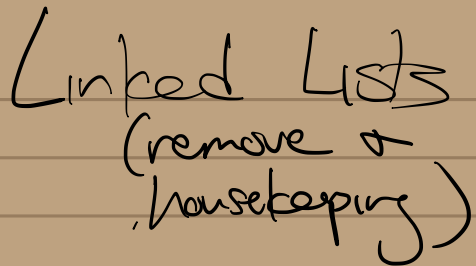 Linked Lists
(remove &
housekeeping)